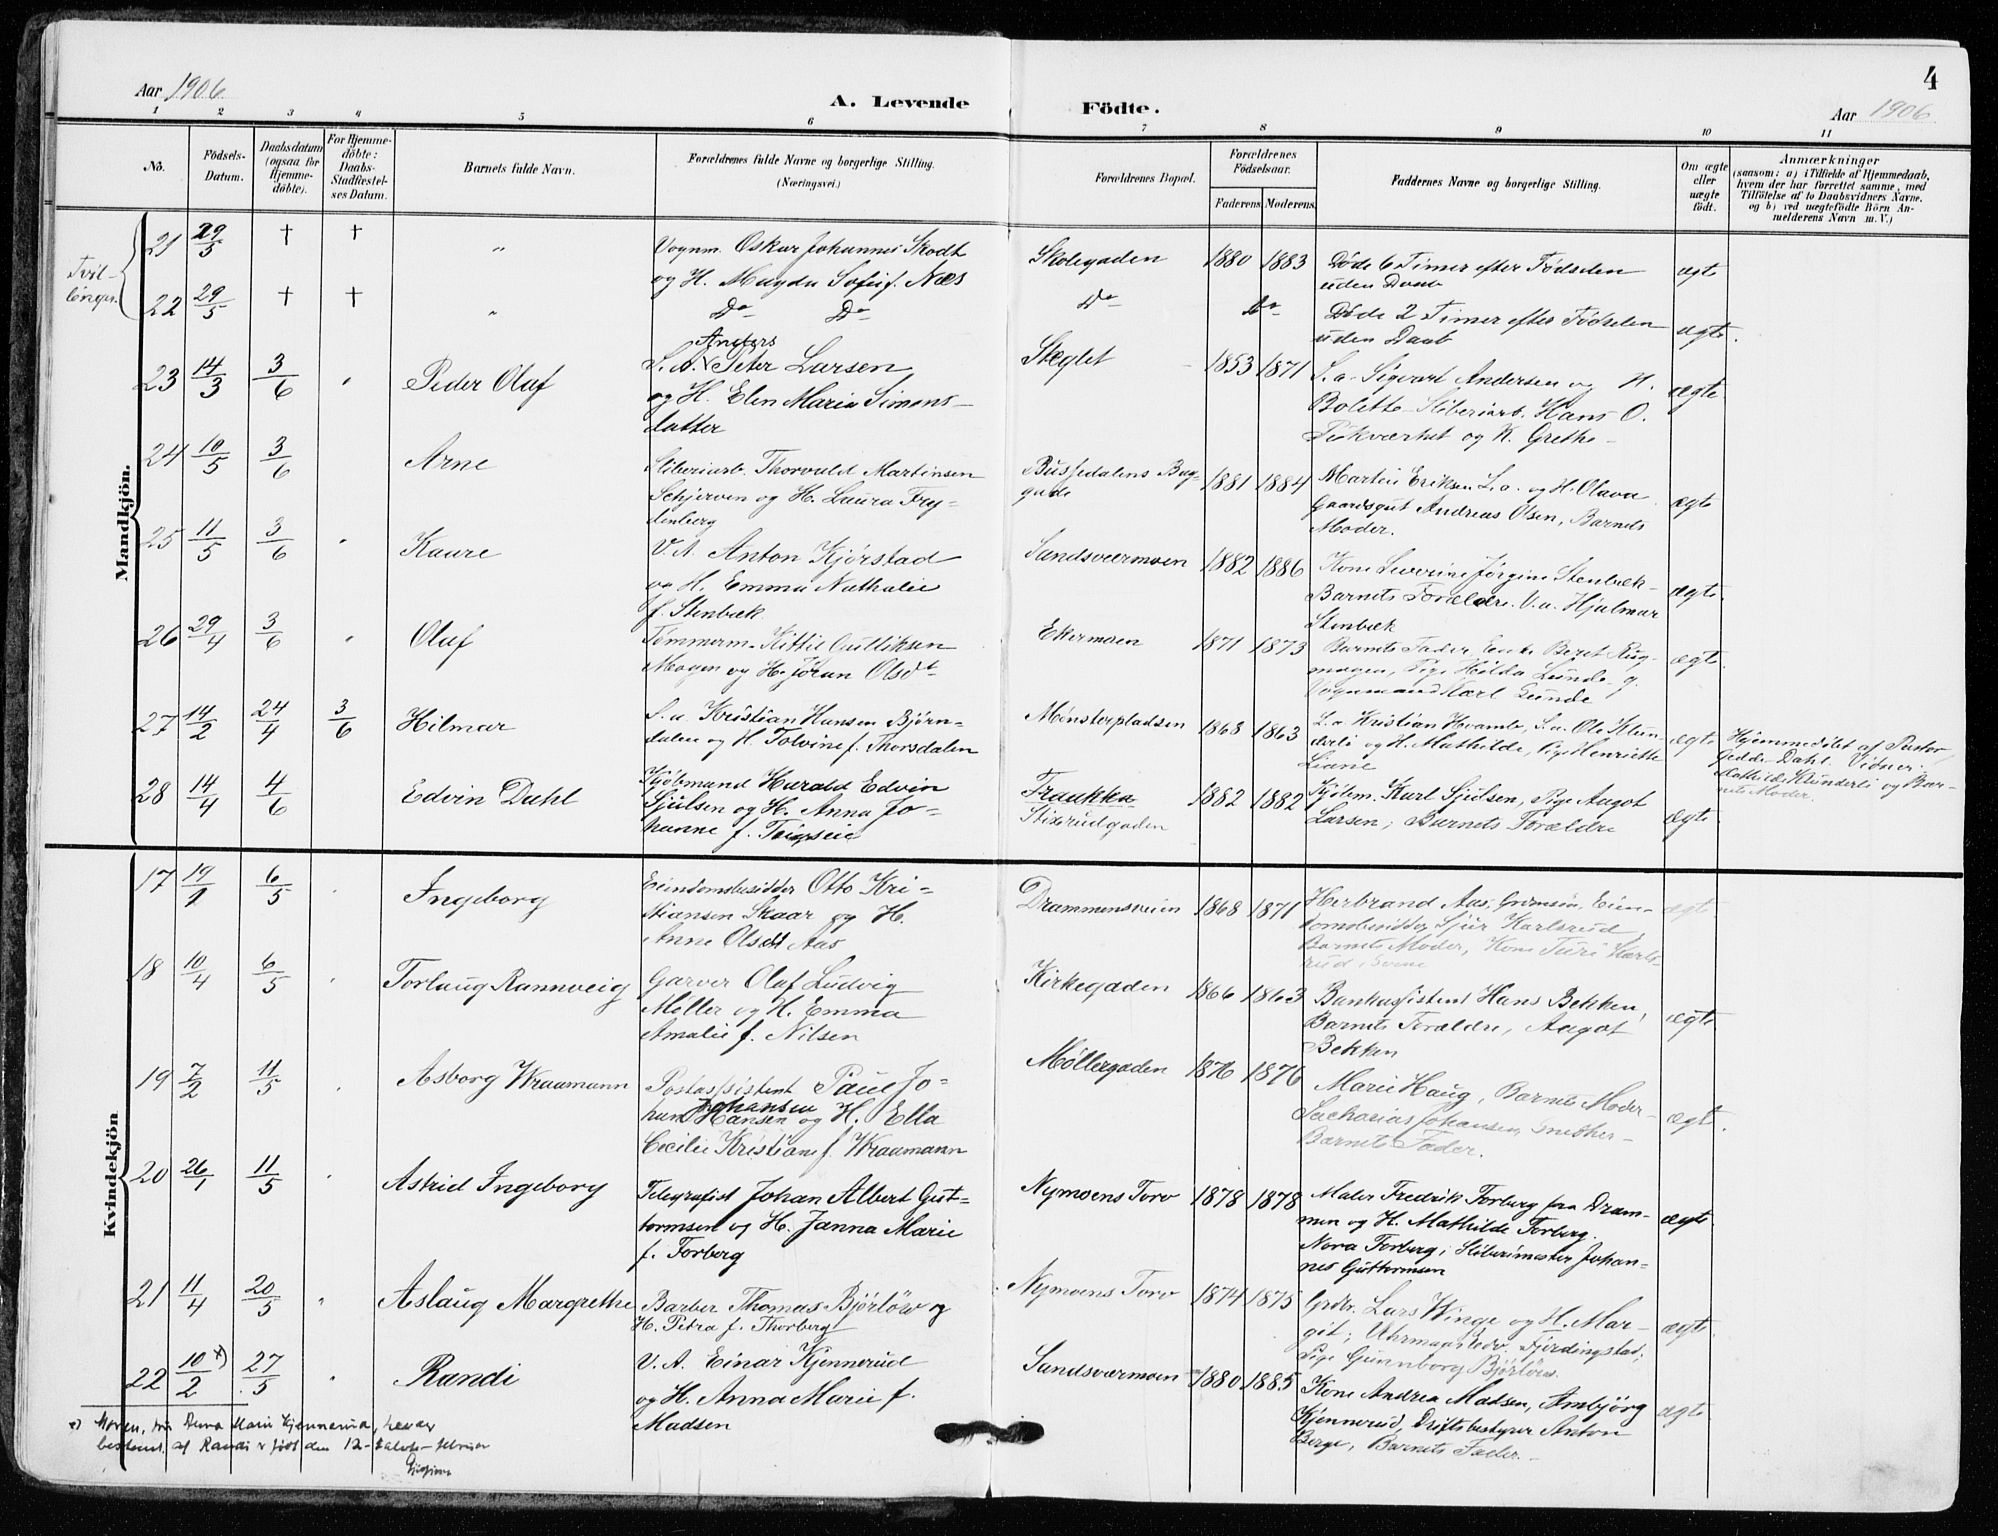 4
Aar 1906
A. Levende
Födte.
Aar 1906
1 2 3 4 5 6 7 8 9 10 11
No.
Födsels-
Datum.
Daabsdatum
(ogsaa for
Hjemme-
döbte).
For Hjemme-
döbte:
Daabs-
Stadfæstel-
ses Datum.
Barnets fulde Navn.
Forældrenes fulde Navne og borgerlige Stilling.
(Næringsvei.)
Forældrenes Bopæl.
Forældrenes
Födselsaar.
Faderens
Moderens.
Faddernes Navne og borgerlige Stilling.
Om ægte
eller
uægte
födt.
Anmærkninger
(saasom: a) i Tilfælde af Hjemmedaab,
hvem der har forrettet samme, med
Tilföielse af to Daabsvidners Navne,
og b) ved uægtefödte Börn An-
melderens Navn m. V.)
Mandkjön.
Tvil-
linger.
21 29/5 † † "
Vognm. Oskar Johannes Skodt
og H. Magda Sofie f. Næs
Skolegaden 1880 1883
Døde 6 Timer efter Fødselen
uden Daab
ægte
22 29/5 † † "
Do Do
Do Do
Døde 2 Timer efter Fødselen
uden Daab
ægte.
23 14/3 3/6 " Peder Olaf
Anders
S. a. Peter Larsen
og H. Elen Marie Simens-
datter
Skeglet 1853 1871
S. a. Sigvart Andersen og H.
Bolette. Sliberiarb. Hans O.
og K. Grethe
ægte.
24 10/5 3/6 Arne
Sliberiarb. Thorvald Martinsen
Schjerven og H. Laura Fry-
denberg
gade 1881 1884
Martin Eriksen S. a. og H. Olava
Gaardsgut Andreas Olsen, Barnets
Moder.
ægte
25 11/5 3/6 " Kaare
V. A. Anton Kjørstad
og H. Emma Nathalie
f. Stenbæk.
Sandsværmoen 1882 1886
Kone Severine Jørgine Stenbæk-
Barnets Forældre. V. a. Hjalmar
Stenbæk
ægte.
26 29/4 3/6 " Olaf
Tømmerm. Kittil Gulliksen
Mogen og H. Jøran Olsdt
Ekermoen 1871 1873
Barnets Fader, Enke Beret Rug-
mogen, Pige Hilda Lunde g.
Vognmand Karl Lunde
ægte.
27 14/2 24/4 3/6 Hilmar
S. a. Kristian Hansen Bjørn-
dalen og H. Tolvine f. Thorsdalen
Mønsterpladsen 1868 1863
S. a. Kristian Hvambo, S. a. Ole Klun-
derli og H. Mathilde, Pige Henriette
Liane
ægte
Hjemmedøbt af Pastor
Gedde-Dahl. Vidner:
Mathilde Klunderli og Bar-
nets Moder.
28 14/4 4/6 Edvin Dahl
Kjøbmand Harald Edvin
Sjulsen og H. Anna Jo-
hanne f.
1882 1882
Kjøbm. Karl Sjulsen, Pige Aagot
Larsen; Barnets Forældre
ægte.
Kvindekjön
17 19/1 6/5 " Ingeborg
Eiendomsbesidder Otto Kri-
stiansen Skaar og H.
Anne Olsdt Aas
Drammensveien 1868 1871
Herbrand Aas, Eien-
domsbesidder Sjur Karlsrud,
Barnets Moder, Kone Turi Karls-
rud,
ægte
18 10/4 6/5 " Torlaug Rannveig
Garver Olaf Ludvig
Møller og H. Emma
Amalie f. Nilsen
Kirkegaden 1866 1863
Bankassistent Hans Bekken,
Barnets Forældre, Aagot
Bekken
ægte.
19 7/2 11/5 " Asborg Wraamann
Postassistent Paul Jo-
han Johansen Hansen og H. Ella
Cecilie Kristiane f. Wraamann
Møllergaden 1876 1876
Marie Haug, Barnets Moder-
Sacharias Johansen,
Barnets Fader.
ægte.
20 26/1 11/5 " Astrid Ingeborg
Telegrafist Johan Albert Gut-
tormsen og H. Janna Marie
f. Torberg
Nymoens Torv 1878 1878
Maler Fredrik Torberg fra Dram-
men og H. Mathilde Torberg.
Nora Torberg; Sliberimester Johan-
nes Guttormsen
ægte.
21 11/4 20/5 " Aslaug Margrethe
Barber Thomas Bjørløw og
H. Petra f. Thorberg
Nymoens Torv 1874 1875
Grdbr. Lars Winge og H. Mar-
git; Uhrmager Fjerdingstad;
Pige Gunnborg Bjørløw.
ægte.
22 10/2 x) 27/5 " Randi
V. A. Einar Kjennerud
og H. Anna Marie f.
Madsen
Sandsværmoen 1880 1885
Kone Andrea Madsen, Ambjørg
Kjennerud, Driftsbestyrer Anton
Berge, Barnets Fader.
ægte
x) Moren, fru Anna Marie Kjennerud, hevder
bestemt at Randi er født den 12-tolvte-februar